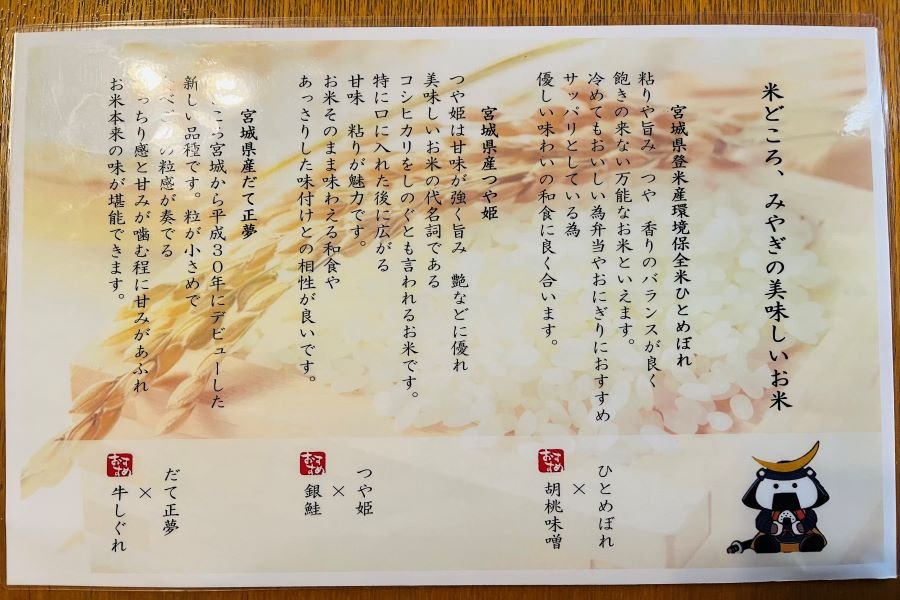 米どころ、みやぎの美味しいお米
宮城県登米産環境保全米ひとめぼれ
粘りや旨み　つや　香りのバランスが良く
飽きの来ない万能なお米といえます。
冷めてもおいしい為弁当やおにぎりにおすすめ
サッパリとしている為
優しい味わいの和食に良く合います。
宮城県産つや姫
つや姫は甘味が強く旨み　艶などに優れ
美味しいお米の代名詞である
コシヒカリをしのぐとも言われるお米です。
特に口に入れた後に広がる
甘味　粘りが魅力です。
お米そのまま味わえる和食や
あっさりした味付けとの相性が良いです。
宮城県産だて正夢
こっ宮城から平成３０年にデビューした
新しい品種です。粒が小さめで
の粒感が奏でる
っちり感と甘みが噛む程に甘みがあふれ
お米本来の味が堪能できます。
おすすめ
ひとめぼれ
×
胡桃味噌
おすすめ
つや姫
×
銀鮭
おすすめ
だて正夢
×
牛しぐれ